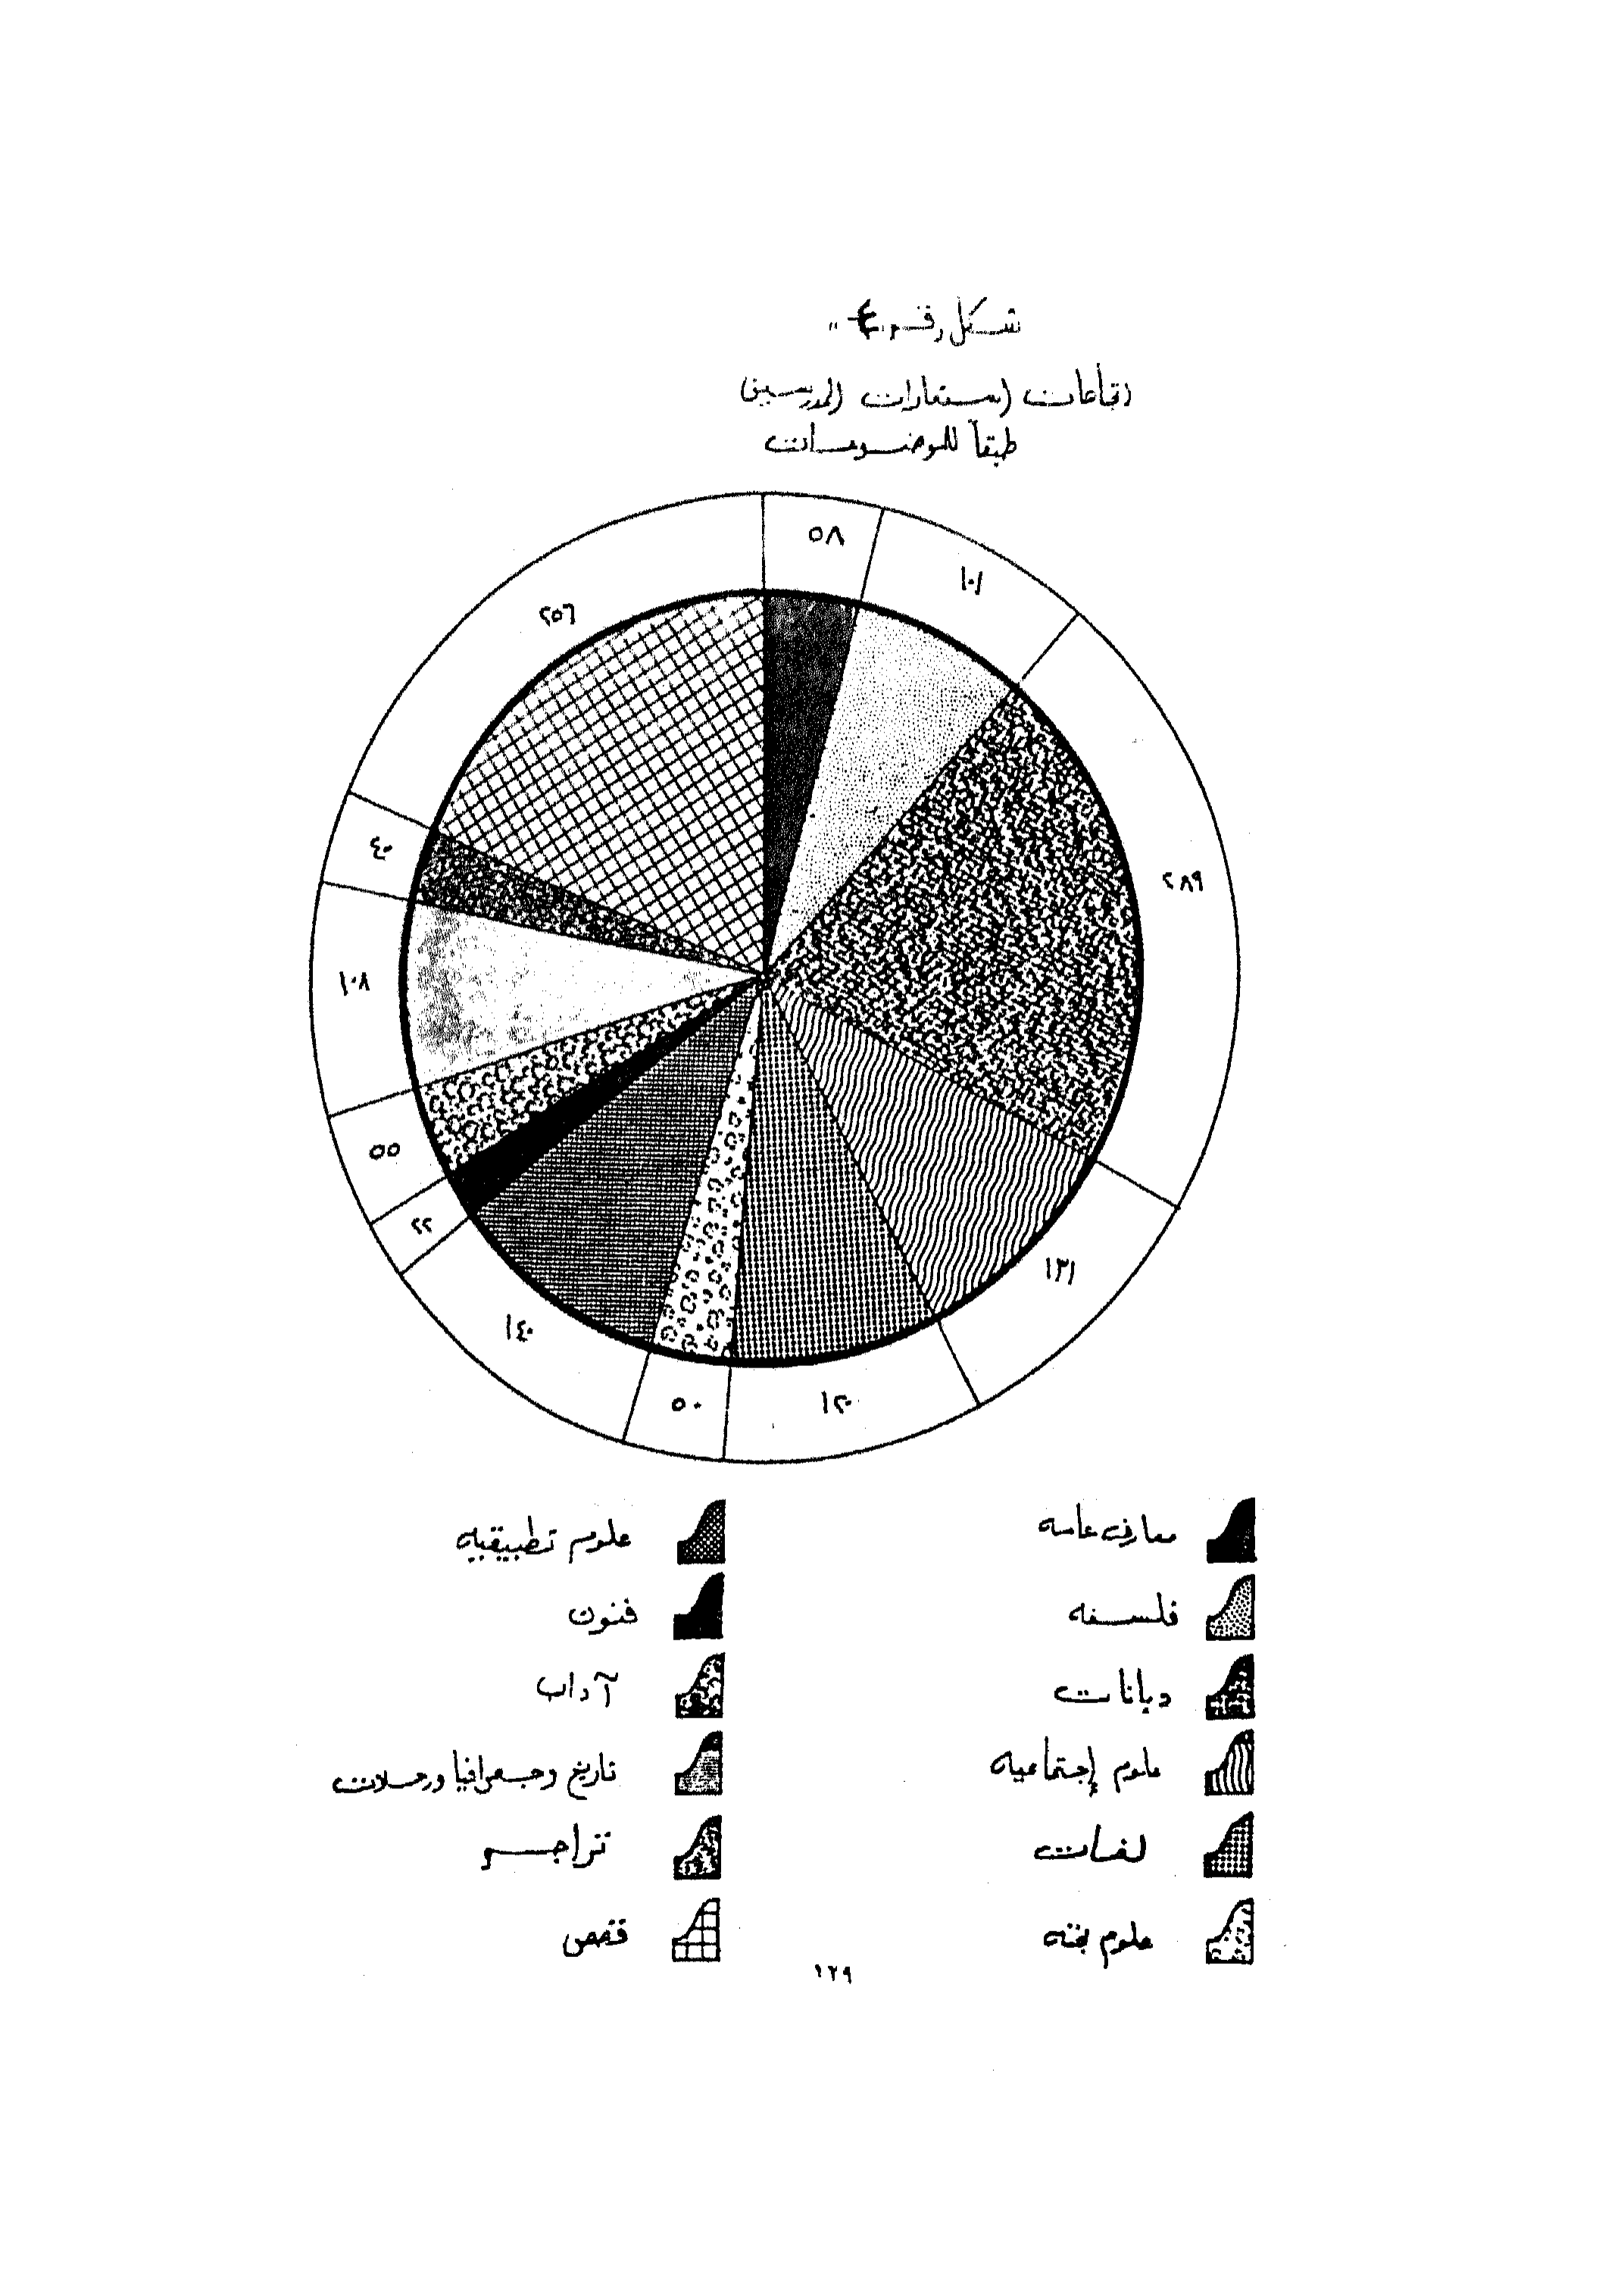 شكل رقم "٤"
إتجاهات إستعارات المدرسين
طبقاً للموضوعات
٥٨
١٠١
٢٨٩
١٣١
١٢٠
٥٠
١٤٠
٢٢
٥٥
١٠٨
٤٠
٢٥٦
معارف عامه
فلسفه
ديانات
علوم إجتماعيه
لغات
علوم بحته
علوم تطبيقيه
فنون
آداب
تاريخ وجغرافيا ورحلات
تراجم
قصص
١٢٩